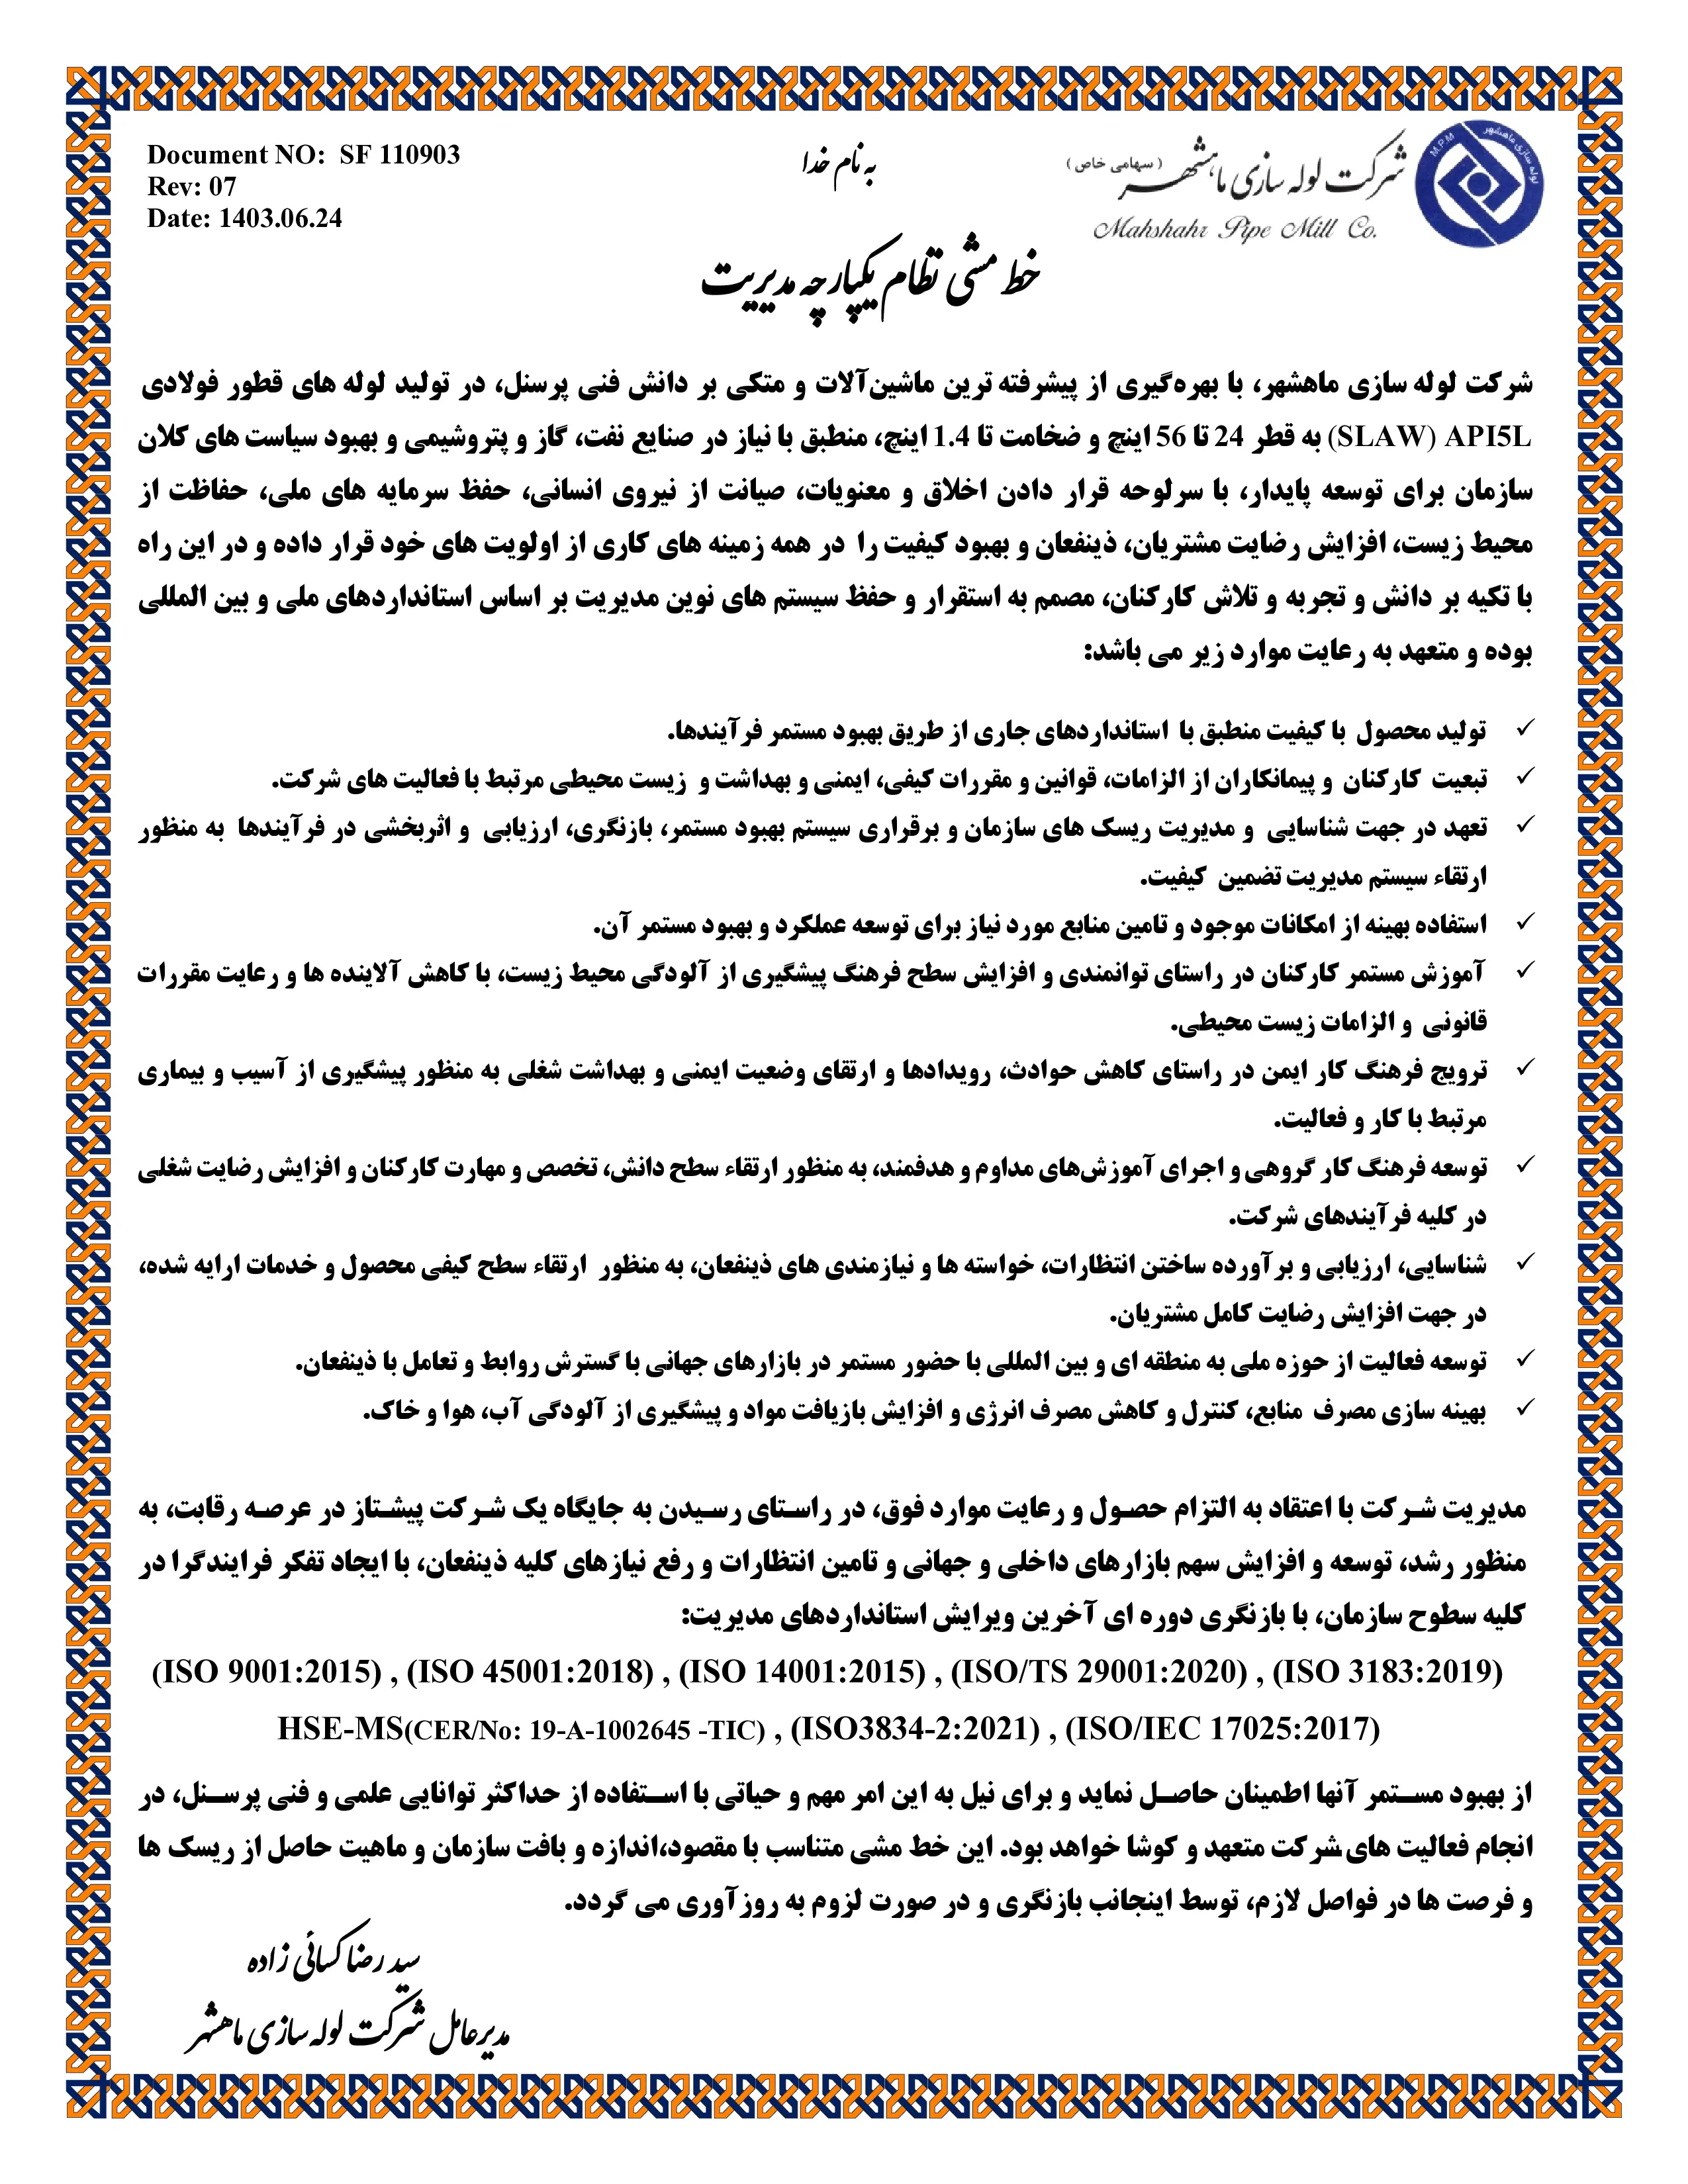 Document NO: SF 110903
Rev: 07
Date: 1403.06.24
به نام خدا
شرکت لوله سازی ماهشهر (سهامی خاص)
Mahshahr Pipe Mill Co.
M.P.M
لوله سازی ماهشهر
خط مشی نظام یکپارچه مدیریت
شرکت لوله سازی ماهشهر، با بهره‌گیری از پیشرفته ترین ماشین‌آلات و متکی بر دانش فنی پرسنل، در تولید لوله های قطور فولادی
API5L (SLAW) به قطر 24 تا 56 اینچ و ضخامت تا 1.4 اینچ، منطبق با نیاز در صنایع نفت، گاز و پتروشیمی و بهبود سیاست های کلان
سازمان برای توسعه پایدار، با سرلوحه قرار دادن اخلاق و معنویات، صیانت از نیروی انسانی، حفظ سرمایه های ملی، حفاظت از
محیط زیست، افزایش رضایت مشتریان، ذینفعان و بهبود کیفیت را در همه زمینه های کاری از اولویت های خود قرار داده و در این راه
با تکیه بر دانش و تجربه و تلاش کارکنان، مصمم به استقرار و حفظ سیستم های نوین مدیریت بر اساس استانداردهای ملی و بین المللی
بوده و متعهد به رعایت موارد زیر می باشد:
✓ تولید محصول با کیفیت منطبق با استانداردهای جاری از طریق بهبود مستمر فرآیندها.
✓ تبعیت کارکنان و پیمانکاران از الزامات، قوانین و مقررات کیفی، ایمنی و بهداشت و زیست محیطی مرتبط با فعالیت های شرکت.
✓ تعهد در جهت شناسایی و مدیریت ریسک های سازمان و برقراری سیستم بهبود مستمر، بازنگری، ارزیابی و اثربخشی در فرآیندها به منظور
ارتقاء سیستم مدیریت تضمین کیفیت.
✓ استفاده بهینه از امکانات موجود و تامین منابع مورد نیاز برای توسعه عملکرد و بهبود مستمر آن.
✓ آموزش مستمر کارکنان در راستای توانمندی و افزایش سطح فرهنگ پیشگیری از آلودگی محیط زیست، با کاهش آلاینده ها و رعایت مقررات
قانونی و الزامات زیست محیطی.
✓ ترویج فرهنگ کار ایمن در راستای کاهش حوادث، رویدادها و ارتقای وضعیت ایمنی و بهداشت شغلی به منظور پیشگیری از آسیب و بیماری
مرتبط با کار و فعالیت.
✓ توسعه فرهنگ کار گروهی و اجرای آموزش‌های مداوم و هدفمند، به منظور ارتقاء سطح دانش، تخصص و مهارت کارکنان و افزایش رضایت شغلی
در کلیه فرآیندهای شرکت.
✓ شناسایی، ارزیابی و برآورده ساختن انتظارات، خواسته ها و نیازمندی های ذینفعان، به منظور ارتقاء سطح کیفی محصول و خدمات ارایه شده،
در جهت افزایش رضایت کامل مشتریان.
✓ توسعه فعالیت از حوزه ملی به منطقه ای و بین المللی با حضور مستمر در بازارهای جهانی با گسترش روابط و تعامل با ذینفعان.
✓ بهینه سازی مصرف منابع، کنترل و کاهش مصرف انرژی و افزایش بازیافت مواد و پیشگیری از آلودگی آب، هوا و خاک.
مدیریت شرکت با اعتقاد به التزام حصول و رعایت موارد فوق، در راستای رسیدن به جایگاه یک شرکت پیشتاز در عرصه رقابت، به
منظور رشد، توسعه و افزایش سهم بازارهای داخلی و جهانی و تامین انتظارات و رفع نیازهای کلیه ذینفعان، با ایجاد تفکر فرایندگرا در
کلیه سطوح سازمان، با بازنگری دوره ای آخرین ویرایش استانداردهای مدیریت:
(ISO 9001:2015) , (ISO 45001:2018) , (ISO 14001:2015) , (ISO/TS 29001:2020) , (ISO 3183:2019)
HSE-MS(CER/No: 19-A-1002645 -TIC) , (ISO3834-2:2021) , (ISO/IEC 17025:2017)
از بهبود مستمر آنها اطمینان حاصل نماید و برای نیل به این امر مهم و حیاتی با استفاده از حداکثر توانایی علمی و فنی پرسنل، در
انجام فعالیت های شرکت متعهد و کوشا خواهد بود. این خط مشی متناسب با مقصود،اندازه و بافت سازمان و ماهیت حاصل از ریسک ها
و فرصت ها در فواصل لازم، توسط اینجانب بازنگری و در صورت لزوم به روزآوری می گردد.
سید رضا کسائی زاده
مدیرعامل شرکت لوله سازی ماهشهر